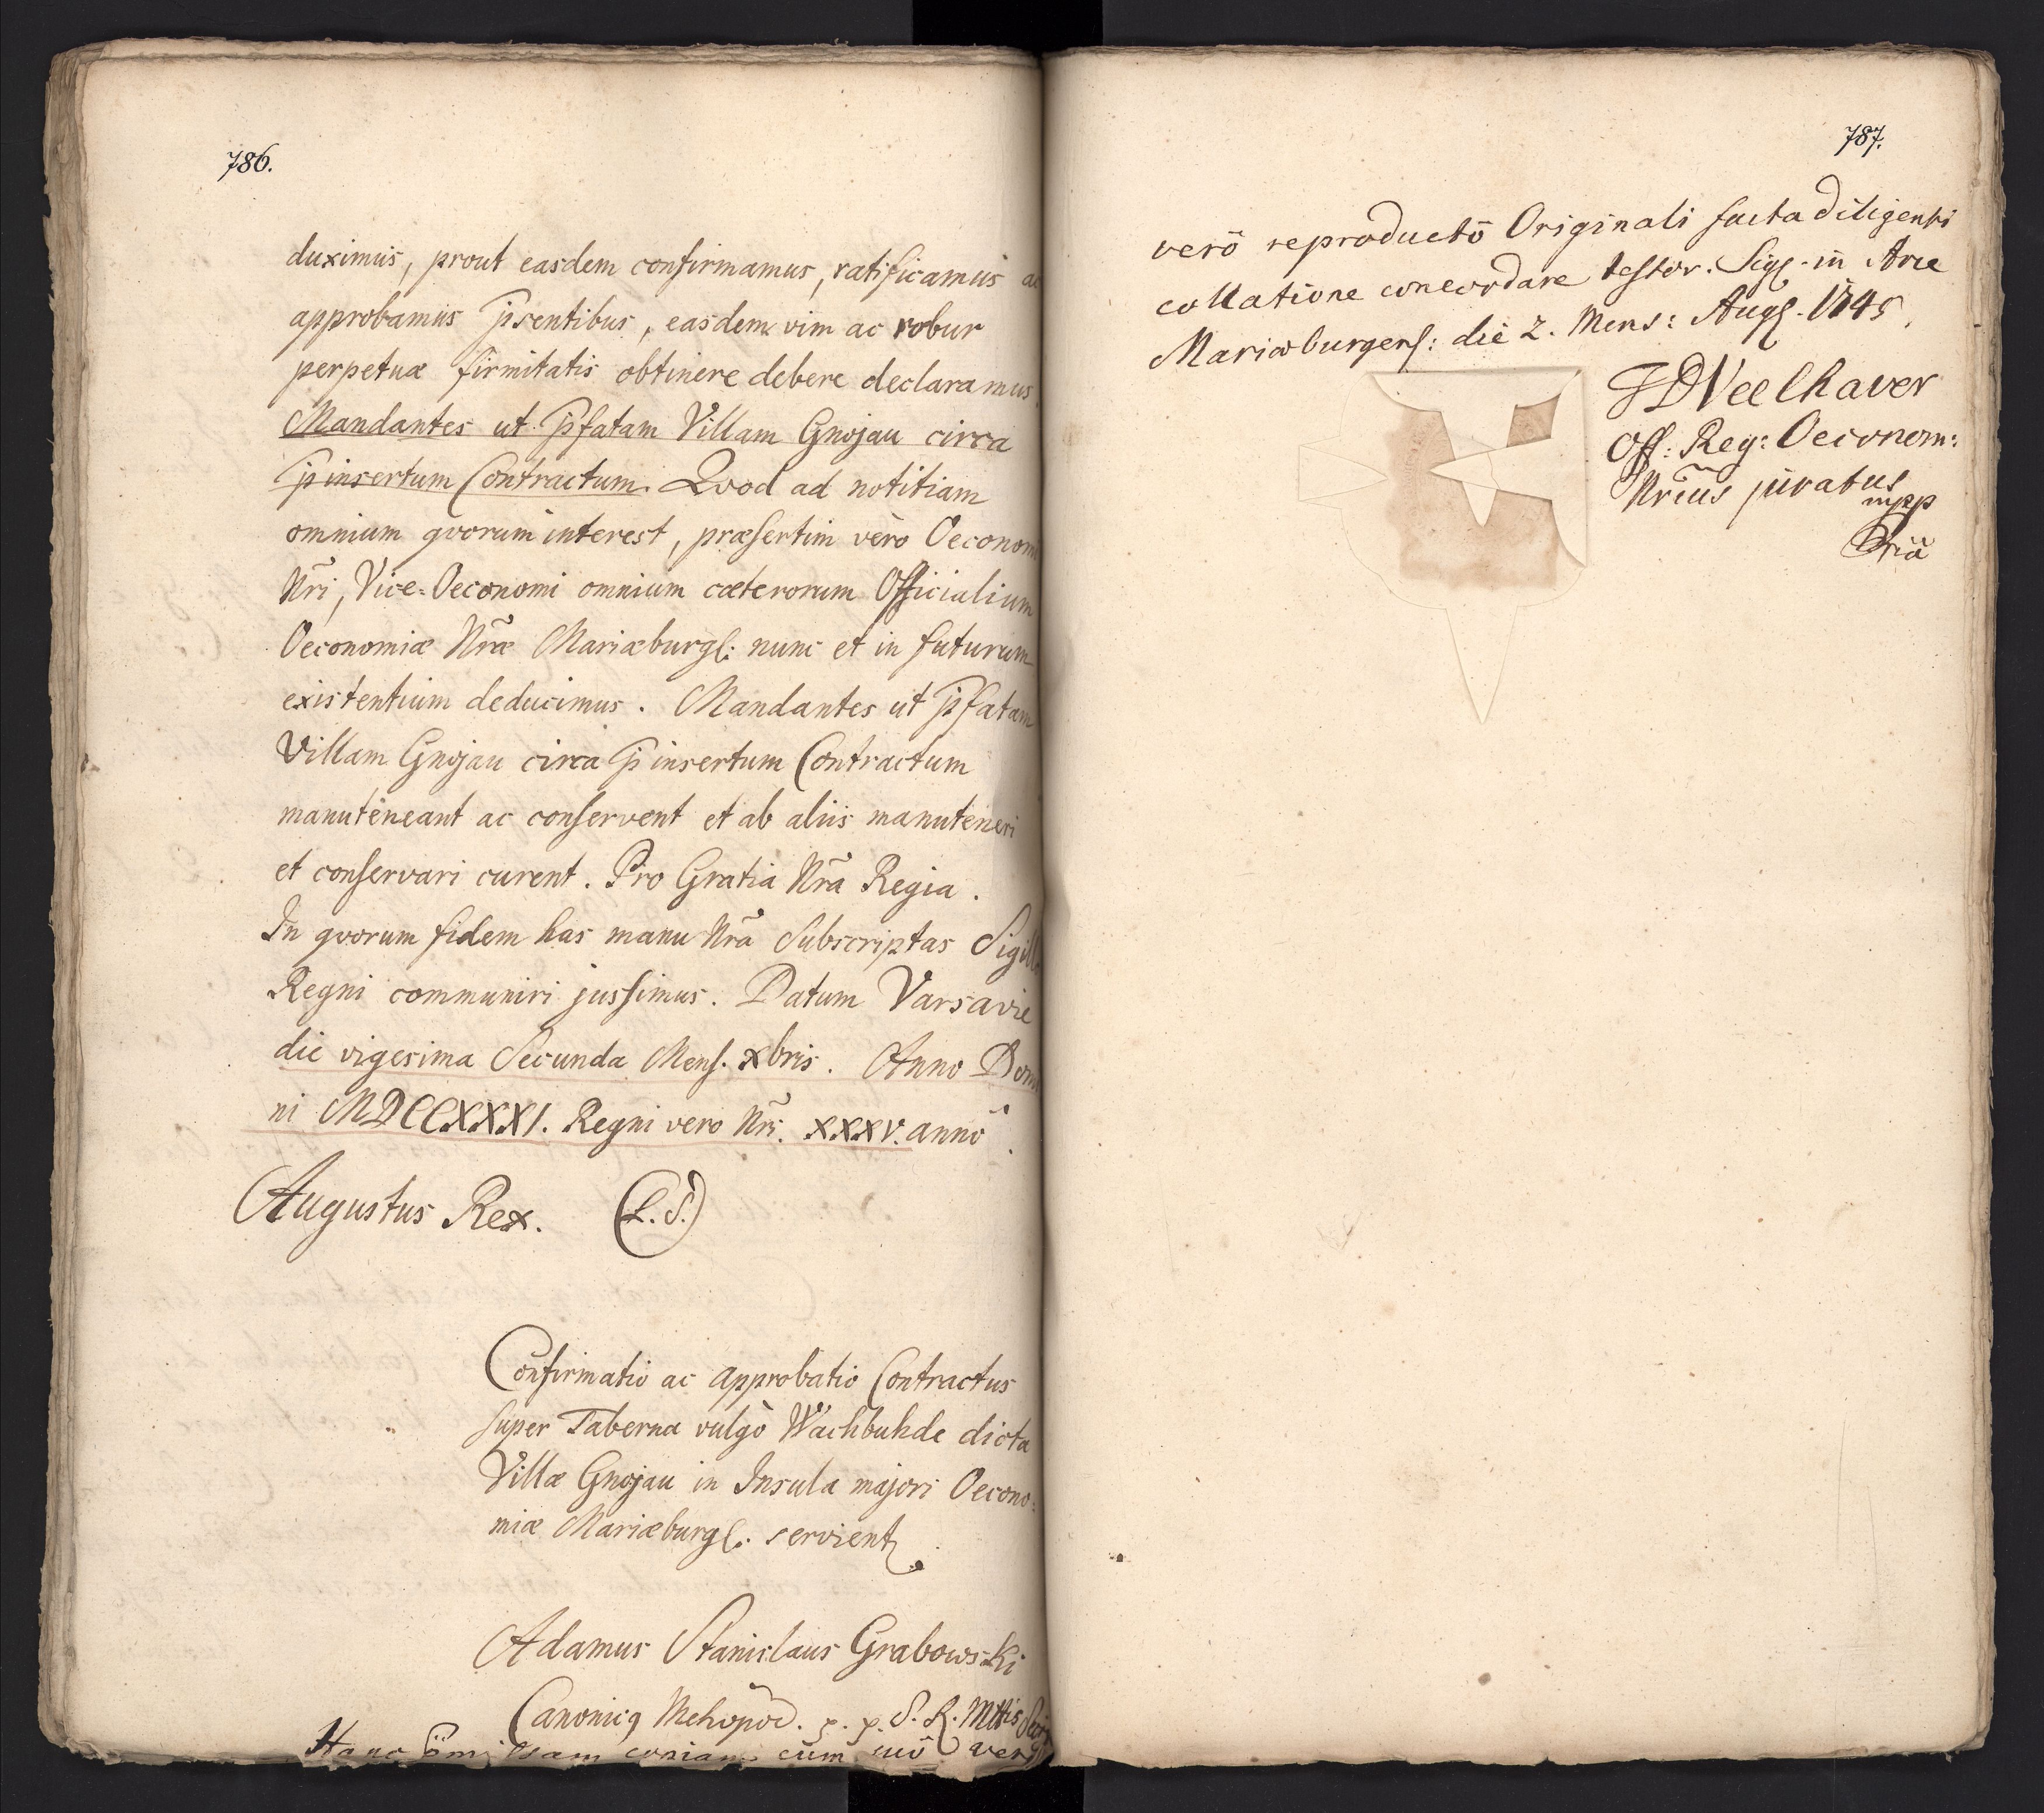 786.
duximus, prout easdem confirmamus, ratificamus ac
approbamus p̄sentibus, easdem vim ac robur
perpetuæ firmitatis obtinere debere declaramus.
Mandantes ut p̄fatam Villam Gnojau circa
p̄insertum Contractum. Qvod ad notitiam
omnium qvorum interest, præsertim vero Oeconomi
Nr̃i, Vice-Oeconomi omnium cæterorum Officialium
Oeconomiæ Nr̃æ Mariæburgs: nunc et in futurum
existentium deducimus. Mandantes ut p̄fatam
Villam Gnojau circa p̄insertum Contractum
manuteneant ac conservent et ab aliis manuteneri
et conservari curent. Pro Gratia Nr̃a Regia.
In qvorum fidem has manu Nr̃a Subscriptas Sigillo
Regni communiri jussimus. Datum Varsavie
die vigesima Secunda Mens. xbris. Anno Domi
ni MDCCXXXI. Regni vero Nr̃i. XXXV. anno.
Augustus Rex. (L.S.)
Confirmatio ac approbatio Contractus
super Taberna vulgò Wachbuhde dicta
Villæ Gnojau in Insula majori Oecono:
miæ Mariæburgs. servient
Adamus Stanislaus Grabowski
Canonicq S. R. Mttis
Hanc copiam cum suo vero
787.
verò reproductô Originali facta diligenti
collatione concordare testor. Sigs. in Arce
Mariæburgens: die 2. Mens: Augs. 1745.
JDVeelhaver
Off: Reg: Oeconom:
Nrius juratus
mpp